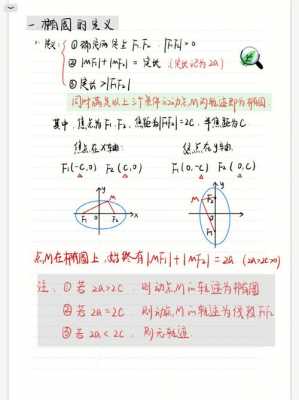 一 椭圆的定义
1. 定义: ① 确定两定点 F₁ F₂ . |F₁F₂|>0
② |MF₁|+|MF₂| = 定长 (定长记为2a)
③ 定长 >|F₁F₂|
同时满足以上三个条件的动点M的轨迹即为椭圆
其中, 焦点为F₁.F₂, 焦距为|F₁F₂|=2C, 半焦距为C
焦点在x轴 焦点在y轴
F₁(-C,0) F₂(C,0) F₁(0,-C) F₂(0,C)
y M F₁ 0 F₂ x
y M F₂ 0 F₁ x
点M在椭圆上, 始终有|MF₁|+|MF₂|=2a (2a>2C>0)
注: ① 若 2a>2C , 则动点M的轨迹为椭圆
② 若 2a=2C , 则动点M的轨迹为线段F₁F₂
③ 若 2a<2C , 则无轨迹.